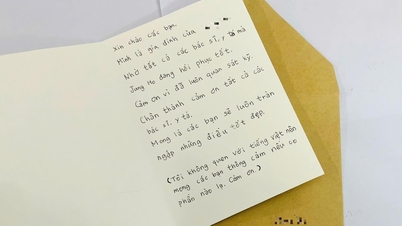 Xin chào, các bạn.
Mình là gia đình của
Nhờ tất cả các bác sĩ, y tá mà
Jung Ho đang hồi phục tốt.
Cảm ơn vì đã luôn quan sát kỹ.
Chân thành cảm ơn tất cả các
bác sĩ, y tá.
Mong là các bạn sẽ luôn tràn
ngập những điều tốt đẹp.
(Tôi không quen với tiếng việt nên
mong các bạn thông cảm nếu có
phần nào lạ. Cảm ơn.)